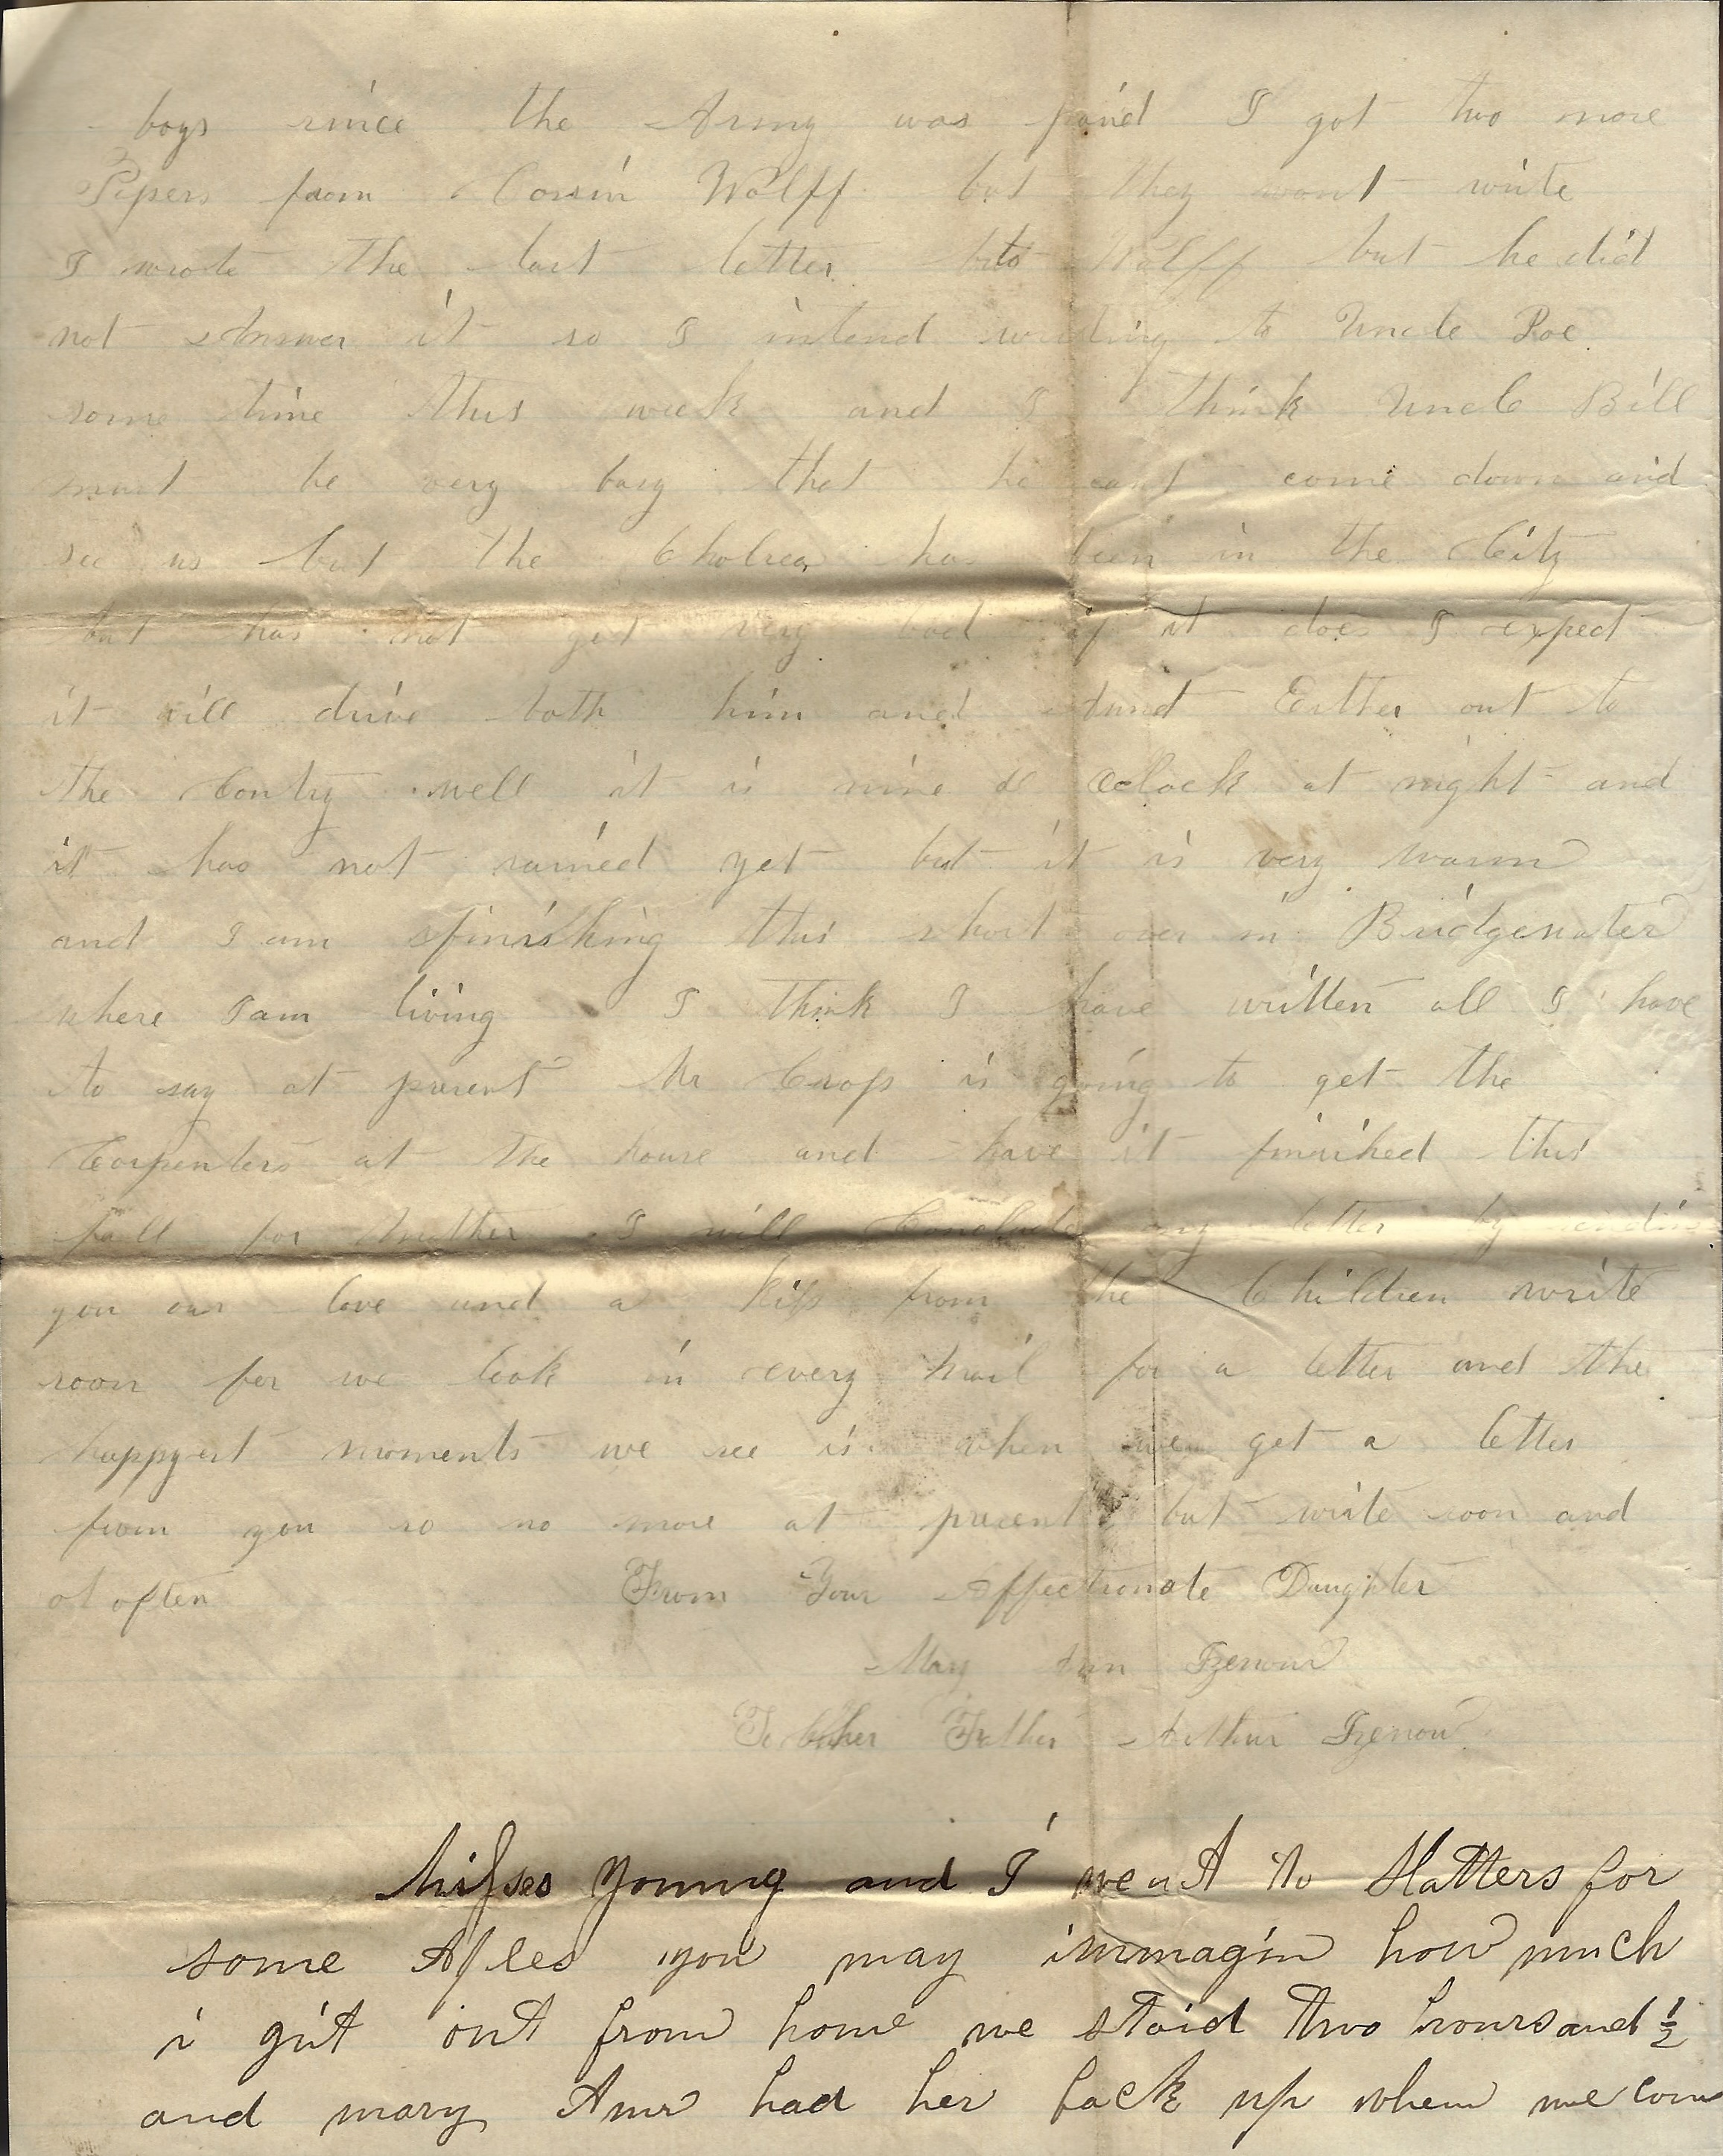 boys since the Army was paid I got two more
Pipers from Cosin Wolff but they wont write
I wrote the last letter to Wolff but he did
not Answer it so I intend writing to Uncle Poe
some time this week and I think Uncle Bill
must be very busy that he cant come down and
see us but the Cholrea has been in the City
but has not got very bad if it does I expect
it will drive both him and Aunt Esther out to
the Contry well it is nine oclock at night and
it has not rained yet but it is very warm
and I am finishing this short over in Bridgewater
where I am living I think I have written all I have
to say at present Mr Crops is going to get the
Carpenters at the house and have it finished this
fall for Mother I will Conclude my letter by
you our love and a kiss from the Children write
soon for we look in every mail for a letter and the
happyest moments we see is when we get a letter
from you so no more at present but write soon and
often From Your Affectionate Daughter
Mary Ann
To her Father Arthur
Misses Young and I went to Hatters for
some Aples you may immagin how much
i git out from home we staid two hours and ½
and mary Ann had her back up when we com